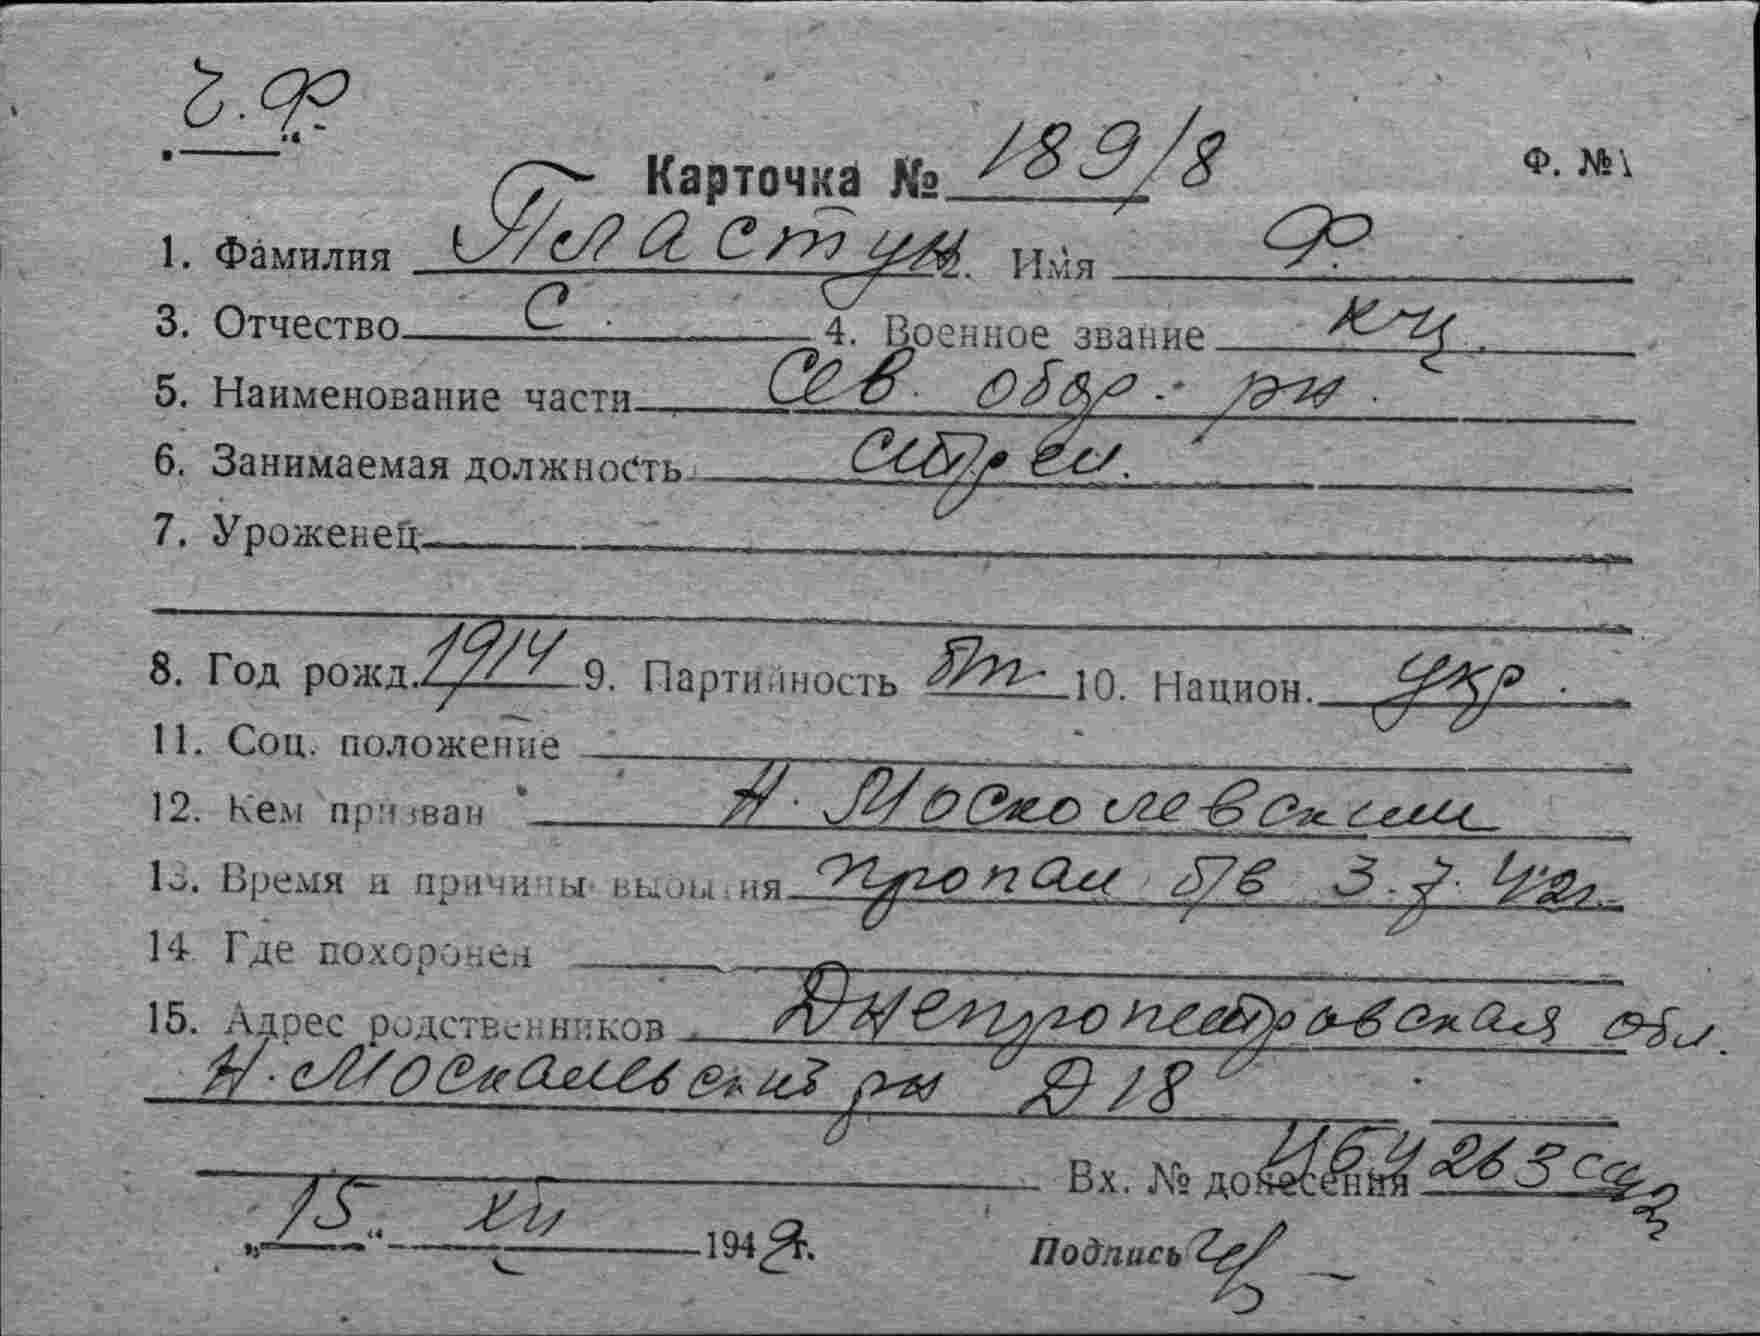 Ч.Ф.
Карточка № 189/8 Ф. №1
1. Фамилия Пластун 2. Имя Ф.
3. Отчество С. 4. Военное звание кц.
5. Наименование части Сев. обор. рн.
6. Занимаемая должность стрел.
7. Уроженец
8. Год рожд. 1914 9. Партийность бп 10. Национ. укр.
11. Соц. положение
12. Кем призван Н. Москолевским
13. Время и причины выбытия пропал б/в 3.7.42г.
14 Где похоронен
15. Адрес родственников Днепропетровская обл.
Н. Москальвский рн Д 18
Вх. № донесения 263
„15“ XII 1942г. Подпись